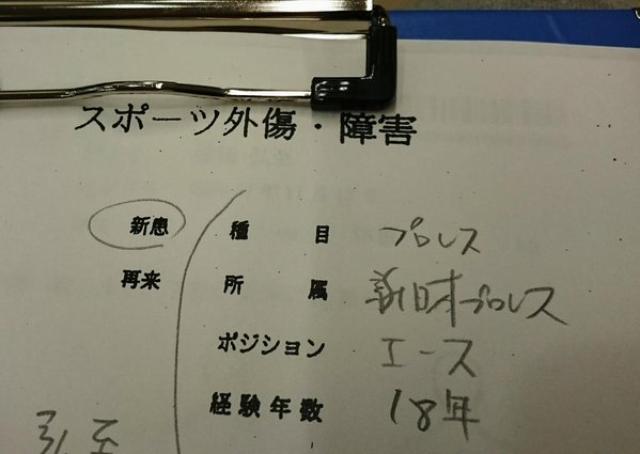 スポーツ外傷・障害
新患 種目 プロレス
再来 所属 新日本プロレス
ポジション エース
経験年数 18年
弘至